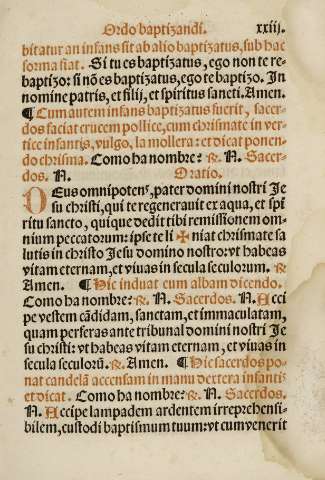 Ordo baptizandi. xxiij.
bitatur an infans sit ab alio baptizatus, sub hac
forma fiat. Si tu es baptizatus, ego non te re-
baptizo: si nõ es baptizatus, ego te baptizo. In
nomine patris, et filij, et spiritus sancti. Amen.
¶ Cum autem infans baptizatus fuerit, sacer-
dos faciat crucem pollice, cum chrismate in ver-
tice infantis, vulgo, la mollera: et dicat ponen-
do chrisma. Como ha nombre? ℟. N. Sacer-
dos. N. Oratio.
DEus omnipotens, pater domini nostri Je
su christi, qui te regenerauit ex aqua, et spiri
ritu sancto, quique dedit tibi remissionem om-
nium peccatorum: ipse te li ✠ niat chrismate sa
lutis in christo Jesu domino nostro: vt habeas
vitam eternam, et viuas in secula seculorum. ℟.
Amen. ¶ Hic induat eum albam dicendo.
Como ha nombre: ℟. N. Sacerdos. N. Acci
pe vestem cãdidam, sanctam, et immaculatam,
quam perferas ante tribunal domini nostri Je
su christi: vt habeas vitam eternam, et viuas in
secula seculorũ. ℟. Amen. ¶ Hic sacerdos po-
nat candelã accensam in manu dextera infantis
et dicat. Como ha nombre: ℟. N. Sacerdos.
N. Accipe lampadem ardentem irreprehensi-
bilem, custodi baptismum tuum: vt cum venerit